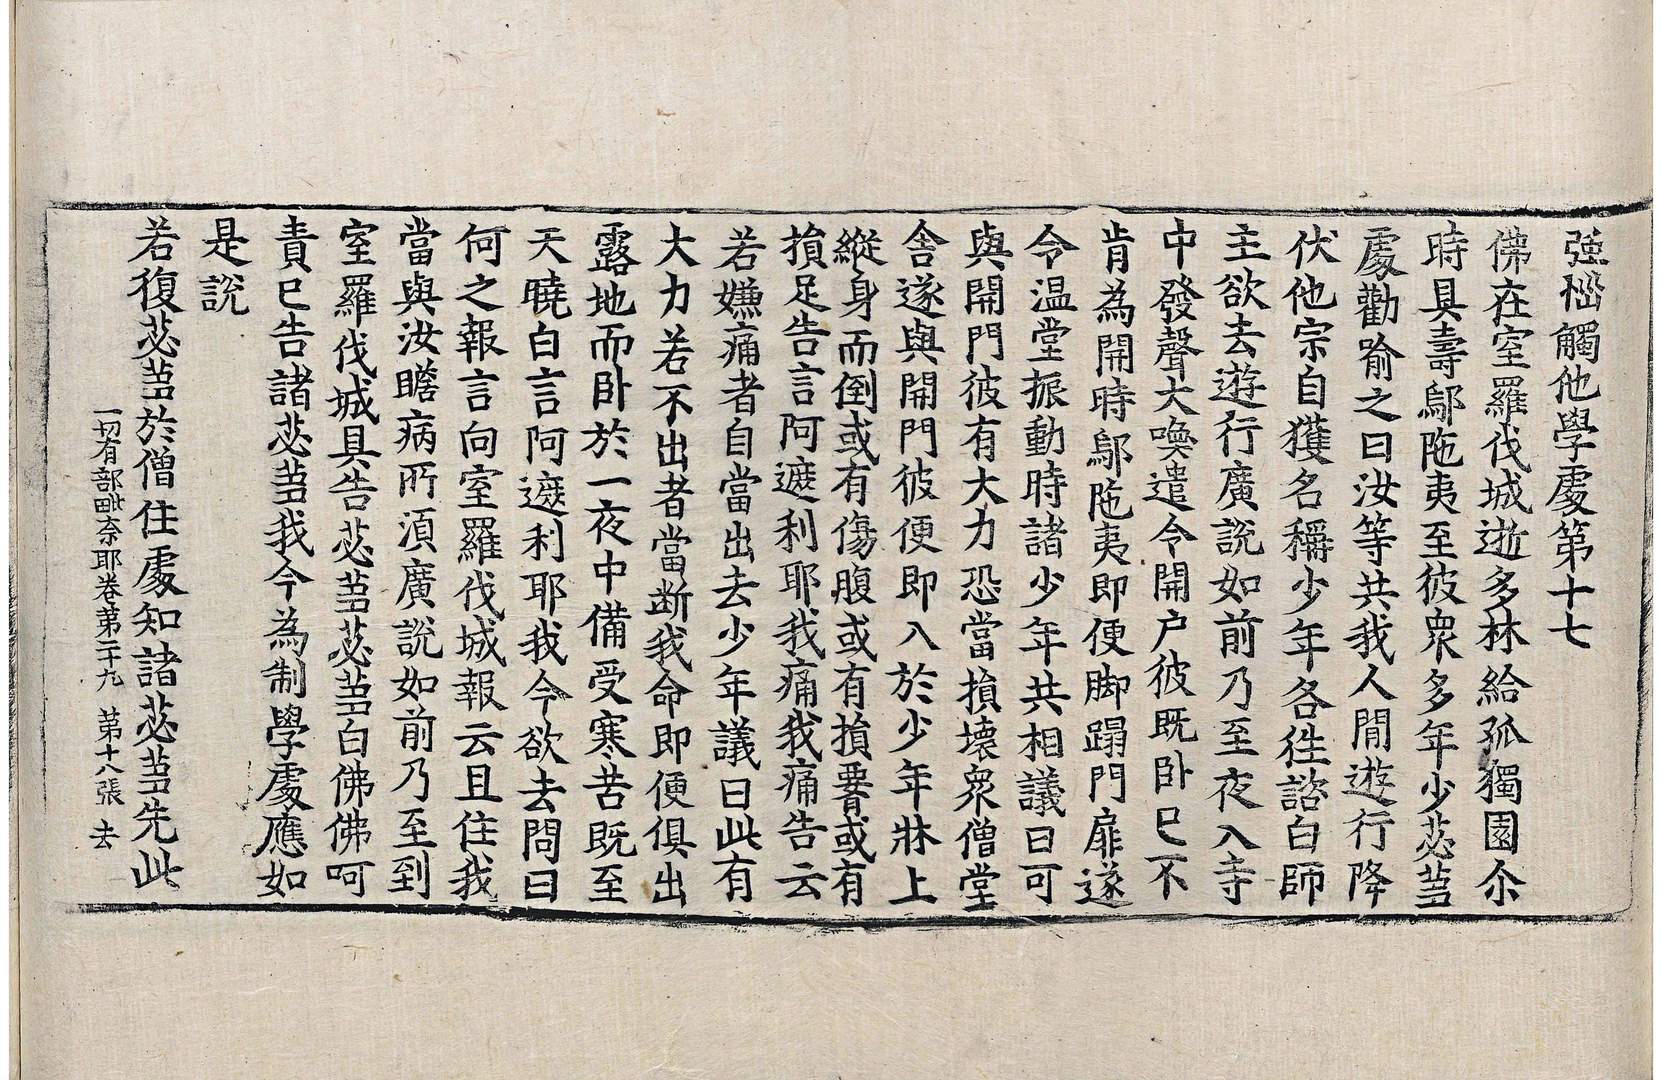 強惱觸他學處第十七
佛在室羅伐城逝多林給孤獨園尒
時具壽鄔陁夷至彼衆多年少苾芻
處勸喻之曰汝等共我人閒遊行降
伏他宗自獲名稱少年各徃諮白師
主欲去遊行廣說如前乃至夜入寺
中發聲大喚遣令開户彼既卧已不
肯為開時鄔陁夷即便脚蹋門扉遂
令温堂振動時諸少年共相議曰可
與開門彼有大力恐當損壞衆僧堂
舍遂與開門彼便即入於少年牀上
縱身而倒或有傷腹或有損腰或有
損足告言阿遮利耶我痛我痛告云
若嫌痛者自當出去少年議曰此有
大力若不出者當断我命即便俱出
露地而卧於一夜中備受寒苦既至
天曉白言阿遮利耶我今欲去問曰
何之報言向室羅伐城報云且住我
當與汝瞻病所湏廣說如前乃至到
室羅伐城具告苾芻苾芻白佛佛呵
責已告諸苾芻我今為制學處應如
是說
若復苾芻於僧住處知諸苾芻先此
一切有部毗奈耶卷第二十九 第十八張 去